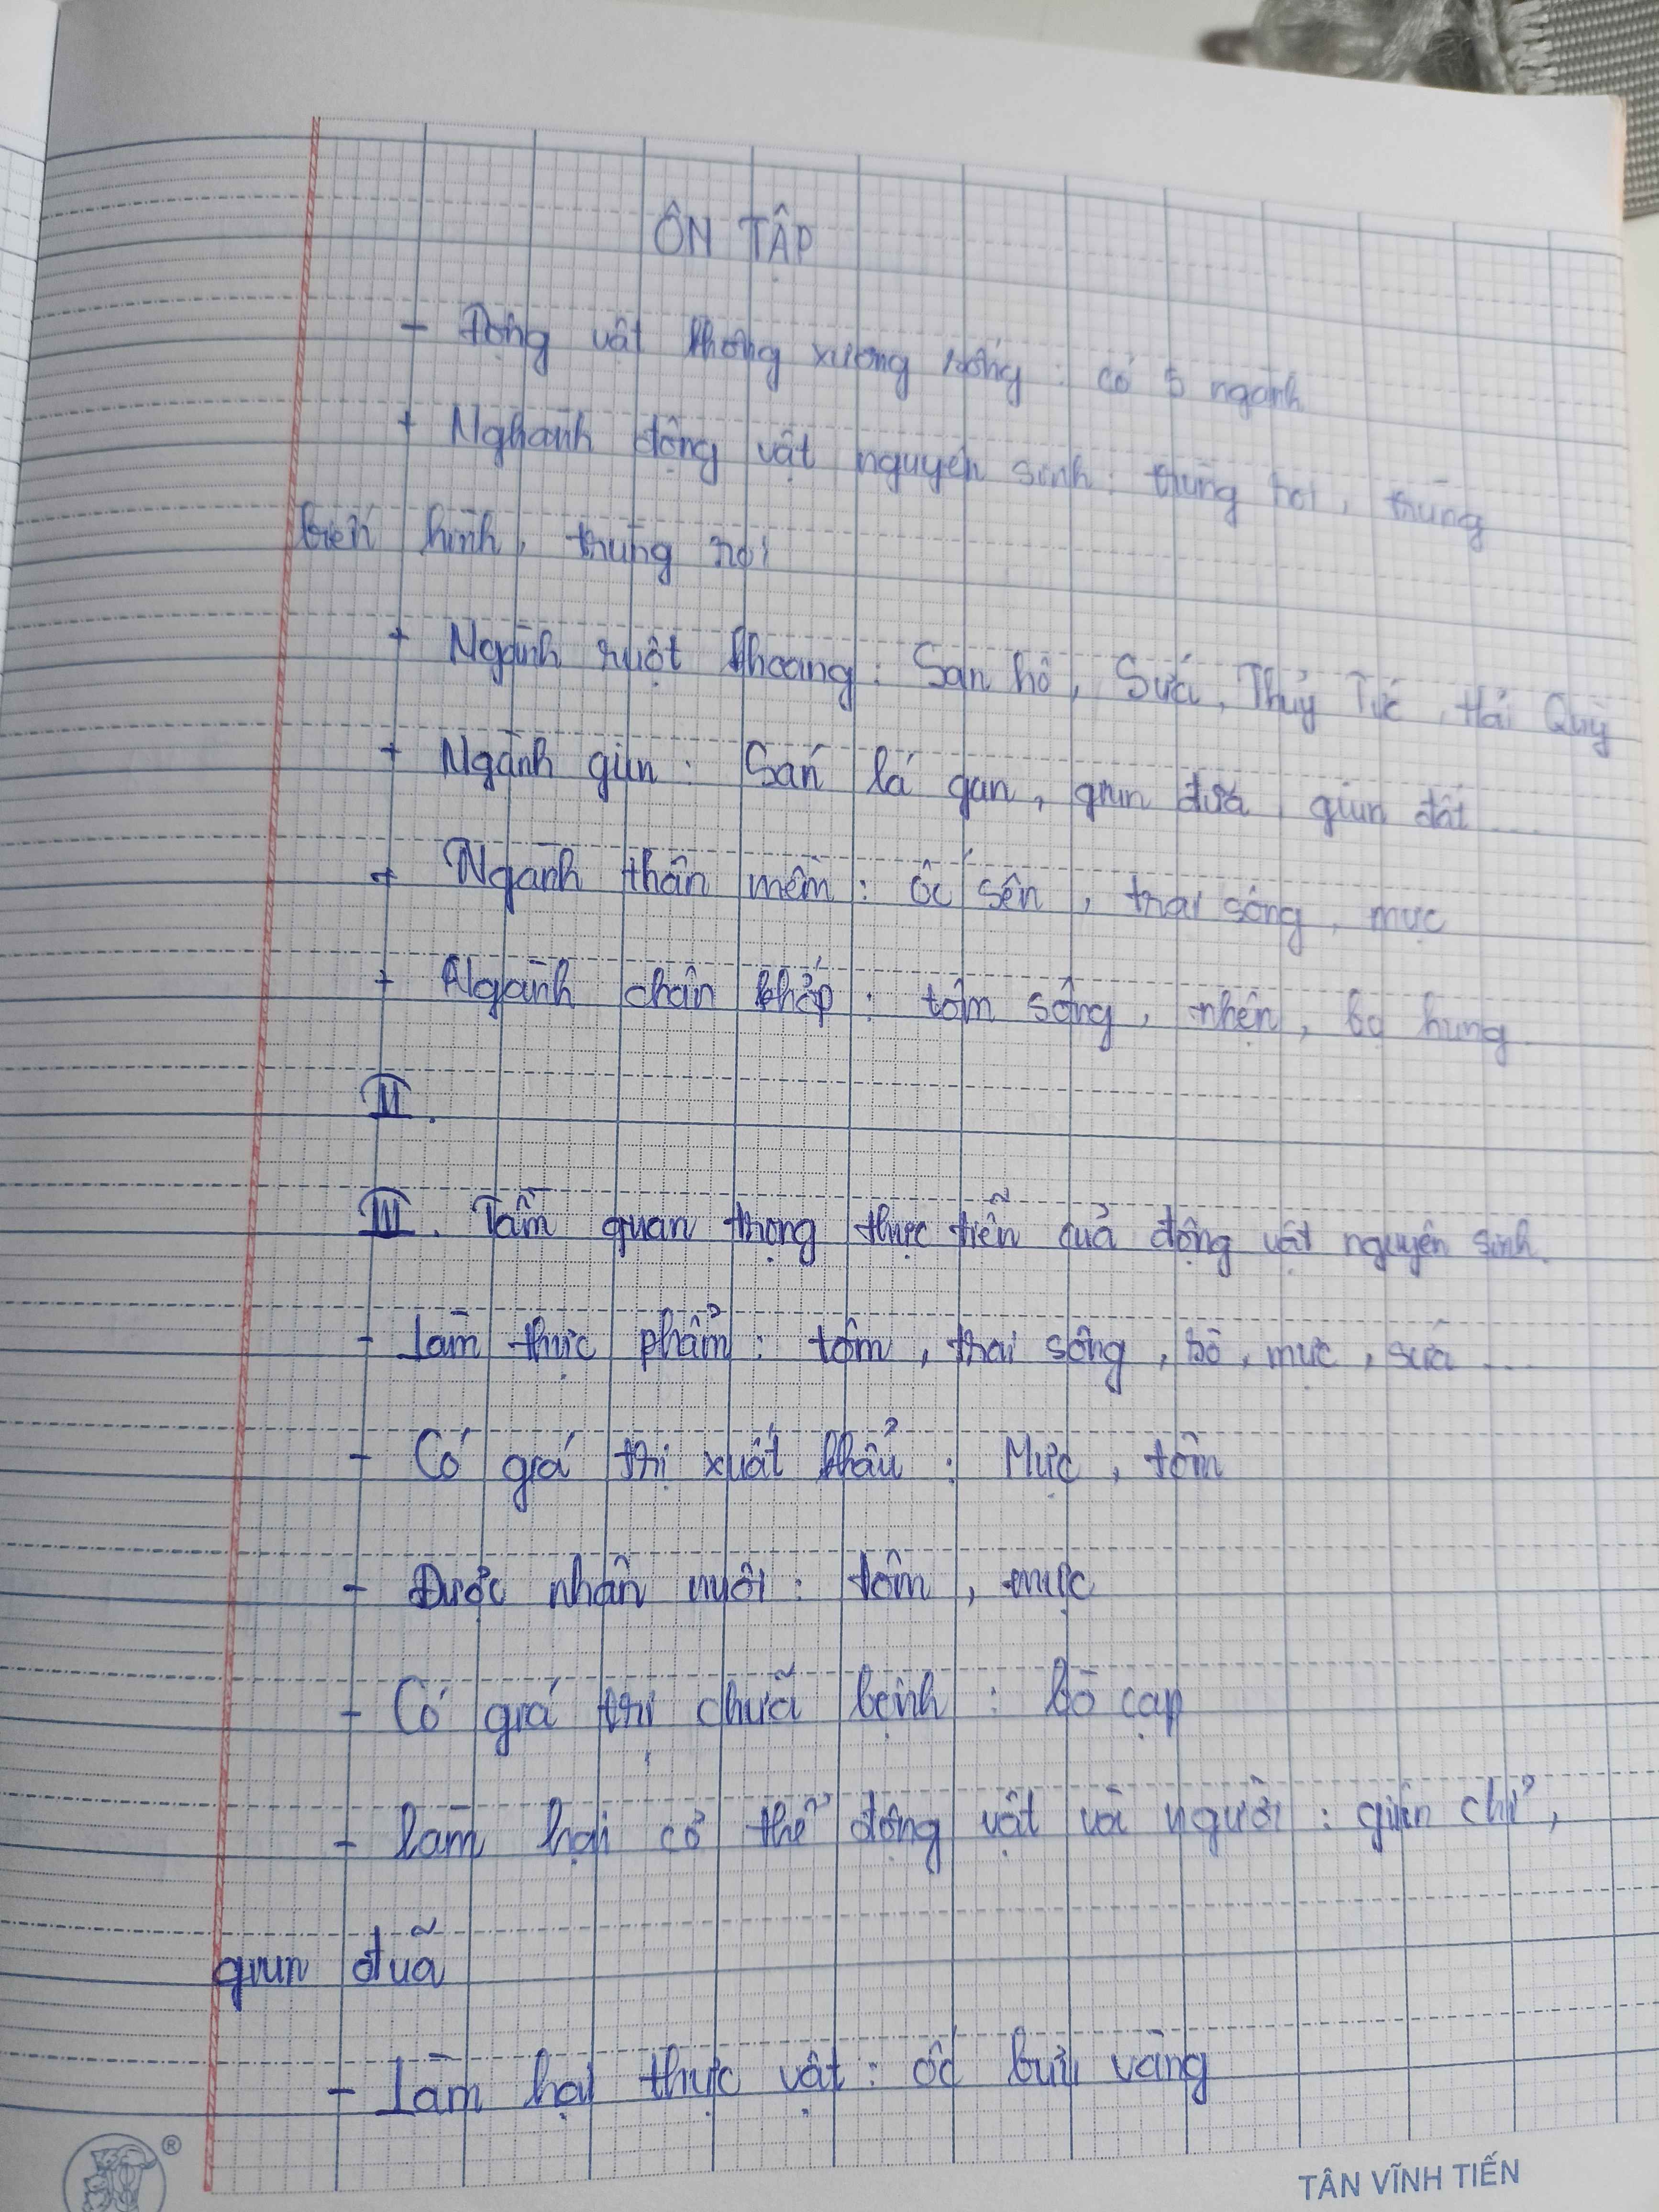 ÔN TẬP
- Động vật không xương sống : có 5 ngành
+ Nghành động vật nguyên sinh : trùng roi, trùng
biến hình, trùng roi
+ Ngành ruột khoang : San hô, Sứa, Thủy Tức, Hải Quỳ
+ Ngành giun : Sán lá gan, giun đũa, giun đất ...
+ Ngành thân mềm : ốc sên, trai sông, mực
+ Ngành chân khớp : tôm sông, nhện, bọ hung
II.
III. Tầm quan trọng thực tiễn của động vật nguyên sinh.
- làm thực phẩm : tôm, trai sông, sò, mực, sứa ...
- Có giá trị xuất khẩu : Mực, tôm
- Được nhân nuôi : tôm, mực
- Có giá trị chữa bệnh : bò cạp
- làm hại cơ thể động vật và người : giun chỉ,
giun đũa
- Làm hại thực vật : ốc bưu vàng
®
TÂN VĨNH TIẾN